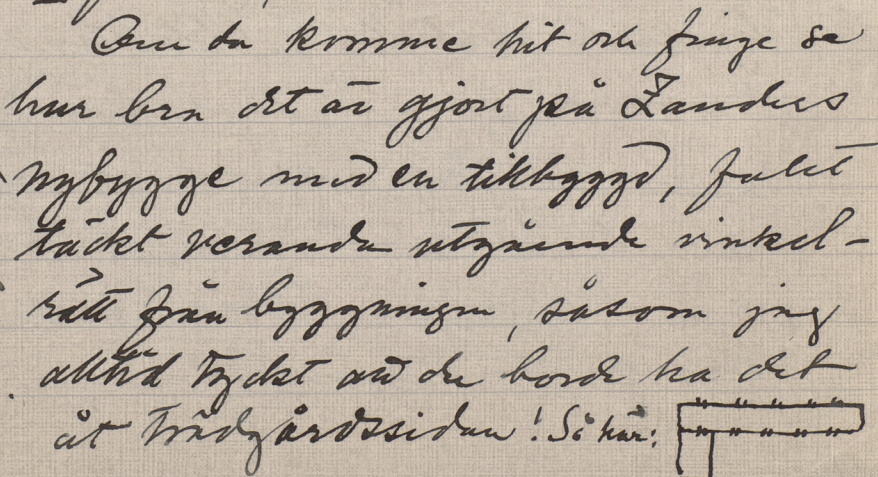 Om du komme hit och finge se
hur bra det är gjort på Zanders
nybygge med en tillbyggd, fullt
täckt veranda utgående vinkel-
rätt från byggningen, såsom jag
alltid tyckt att du borde ha det
åt trädgårdssidan! Så här: